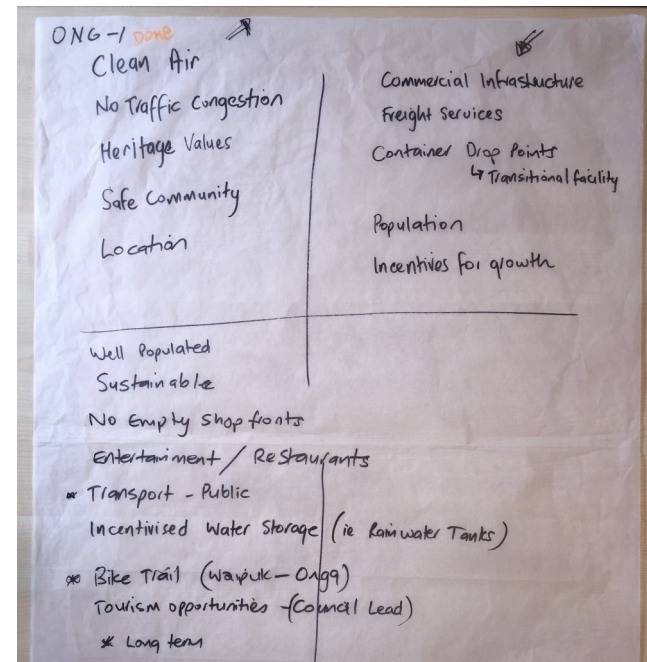 ONG-1 Done
Clean Air
No Traffic Congestion
Heritage Values
Safe Community
Location
Commercial Infrastructure
Freight Services
Container Drop Points
↳ Transitional facility
Population
Incentives for growth
Well Populated
Sustainable
No Empty Shop fronts
Entertainment / Restaurants
* Transport - Public
Incentivised Water Storage (ie Rainwater Tanks)
* Bike Trail (Waipuk - Onga)
Tourism opportunities - (Council Lead)
* Long term